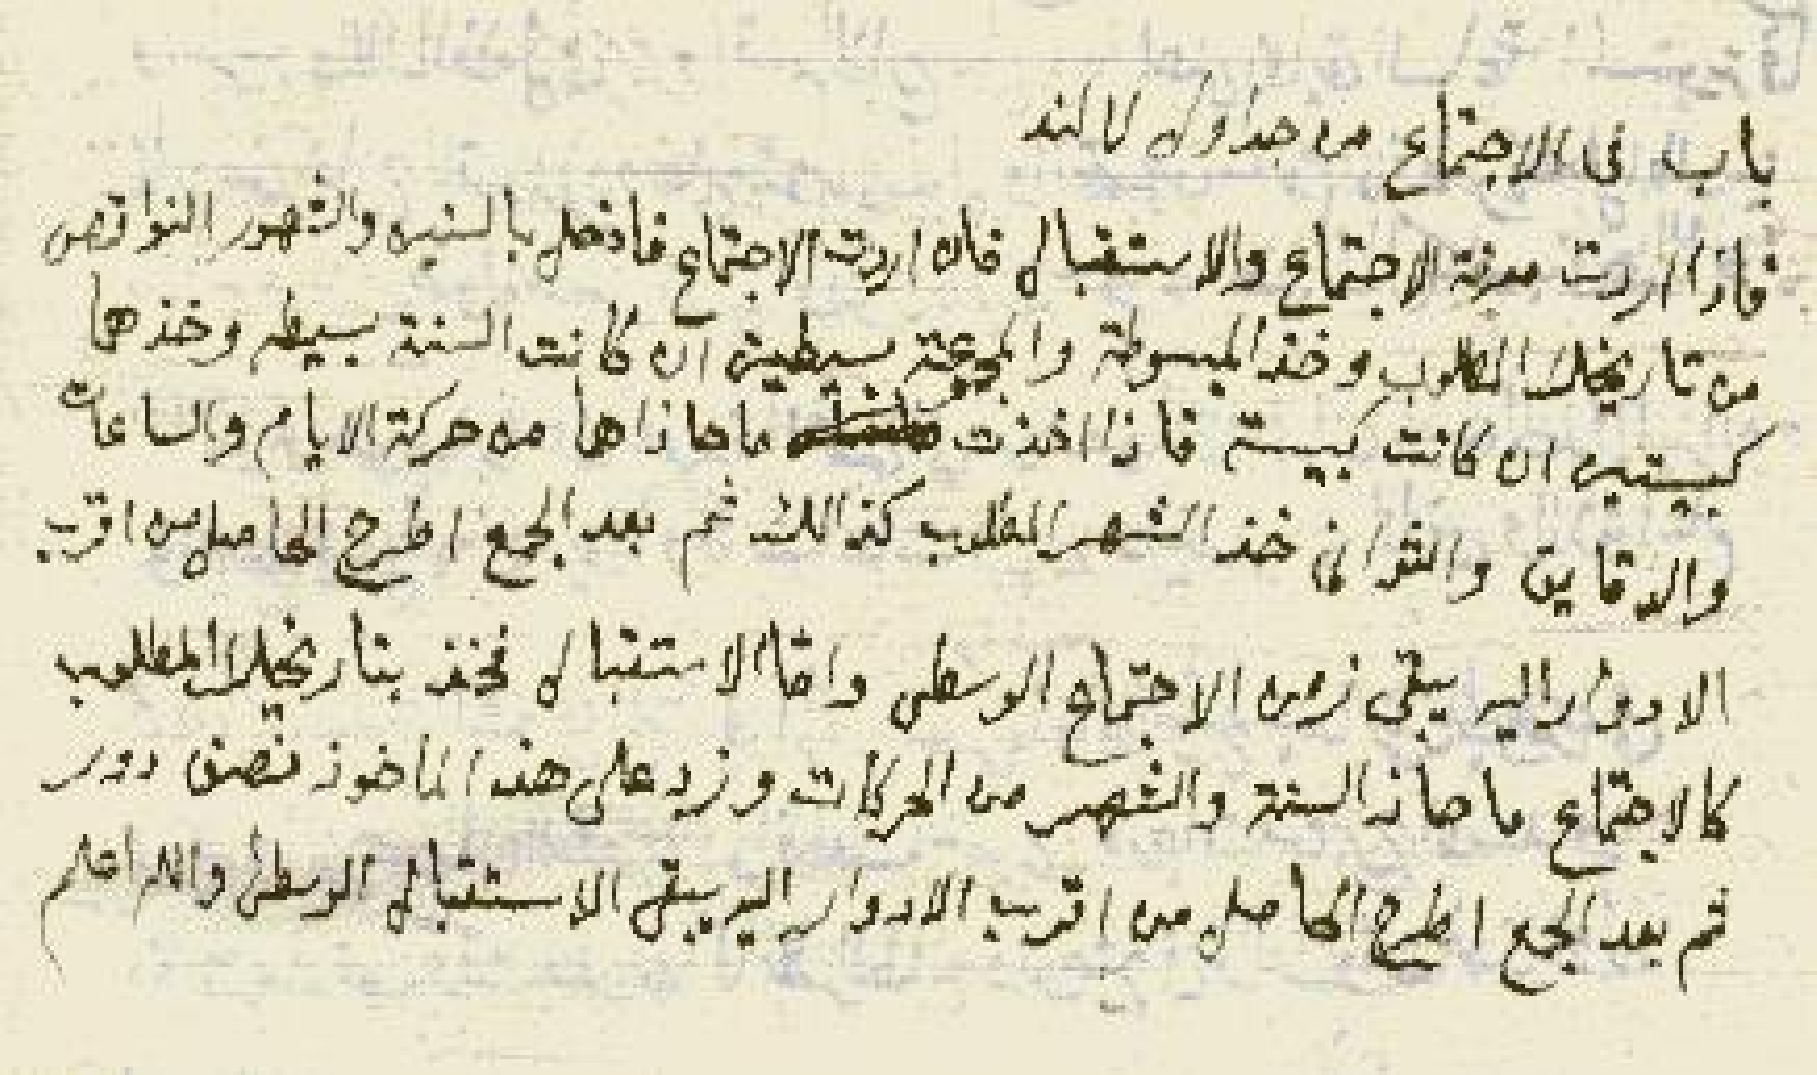 باب فى الاجتماع من جداول لالند
فاذا اردت معرفة الاجتماع والاستقبال فان اردت الاجتماع فادخل بالسنين والشهور النواقص
من تاريخك المطلوب وخذ المبسوطة والمجموعة بسيطتين ان كانت السنة بسيطه وخذهما
كبيستين ان كانت كبيسة فاذا اخذت ما حاذاها من حركة الايام والساعات
والدقايق والثوانى خذ الشهر المطلوب كذالك ثم بعد الجمع اطرح الحاصل من اقرب
الادوار اليه يبقى زمن الاجتماع الوسطى واما الاستقبال فخذ بتاريخك المطلوب
كالاجتماع ما حاذا السنة والشهر من الحركات وزد على هذا الماخوذ نصف دور
ثم بعد الجمع اطرح الحاصل من اقرب الادوار اليه يبقى الاستقبال الوسطى والله اعلم